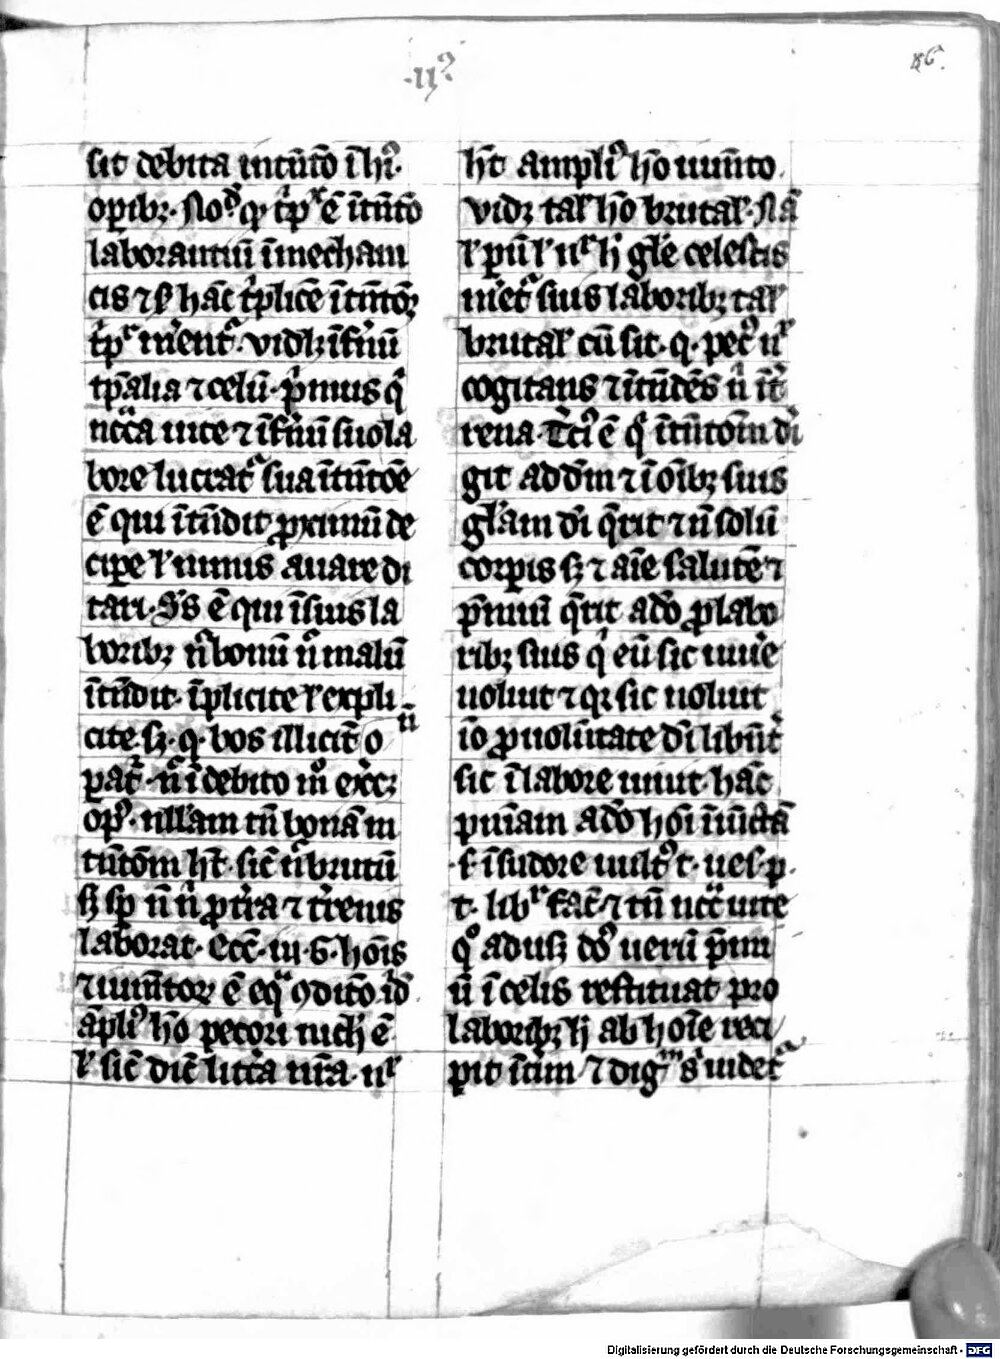 ·II·
86.
sit debita intētō ī hi⁹.
oꝑibꝫ. Noᵈ ꝙ tͥpˣ ē ītētō
laborantiū ī mechani
cis ⁊ hāc tͥplicē ītētoꝫ
tͥpᵗ mͥent. vidlꝫ īfͥnū
tp̄alia ⁊ celū. pͥmus qͥ
nccͣa uite ⁊ īfͥnū suo la
bore lucratᷣ sua ītētōe
ē qui ītēdit ꝓximū de
ciꝑe ł nimis auare di
tari. S̄s ē qui ī suis la
boribꝫ nͨ bonū nͨ malū
ītēdit. īplicite ł expli
cite. sꝫ. q. bos illicit̄ o
ꝑat̄. nͨ ī debito mͦ exͨcꝫ
opᵒ. nullam tn̄ bonā in
tētōm hꝫ. sic̄ nͨ brutū
sꝫ sꝑ n̄ nͥ ꝓ tr̄a ⁊ tr̄enis
laborat. Ecc̄. iii. G. hoīs
⁊ iumētoꝝ ē eqͣ ꝯditō. id̄
ampliᵒ hō pecori nichͥ ē
ł sic̄ dic̄ litͨa nr̄a. nͥ
ht̄ ampliᵒ hō iumēto.
vidꝫ tał hō brutał. Nā
ł pn̄ ł nˣ hͥ glͥe celestis
mͥetᷣ suis laboribꝫ tał
brutał cū sit. q. pecᵒ nˡ
cogitans ⁊ ītēdēs nͥ īt̄
rena. Tͨciᵒ ē qͥ ītētōm dͥi
git ad dm̄ ⁊ ī oībꝫ suis
glͥam dī qͨrit ⁊ n̄ solū
corꝑis sꝫ ⁊ aīe salutē ⁊
p̄miū qͨrit a dō ꝓ labo
ribꝫ suis qͥ eū sic uiuͨe
uoluit ⁊ qꝛ sic uoluit
iō ꝓ uolūtate dī libn̄t̄
sic ī labore uiuit. hāc
pn̄iam a dō hoī iūctā
.s. ī sudore uultᵒ t. ues. p.
t. libᵗ fac̄ ⁊ tn̄ nccͣ uite
qͦ adusqꝫ dō uerū p̄mi
ū ī celis restituat pro
laboribꝫ hͥ ab hoīe reci
pit īt̄im ⁊ digᵐ sͥ uidetᷣ
Digitalisierung gefördert durch die Deutsche Forschungsgemeinschaft - DFG